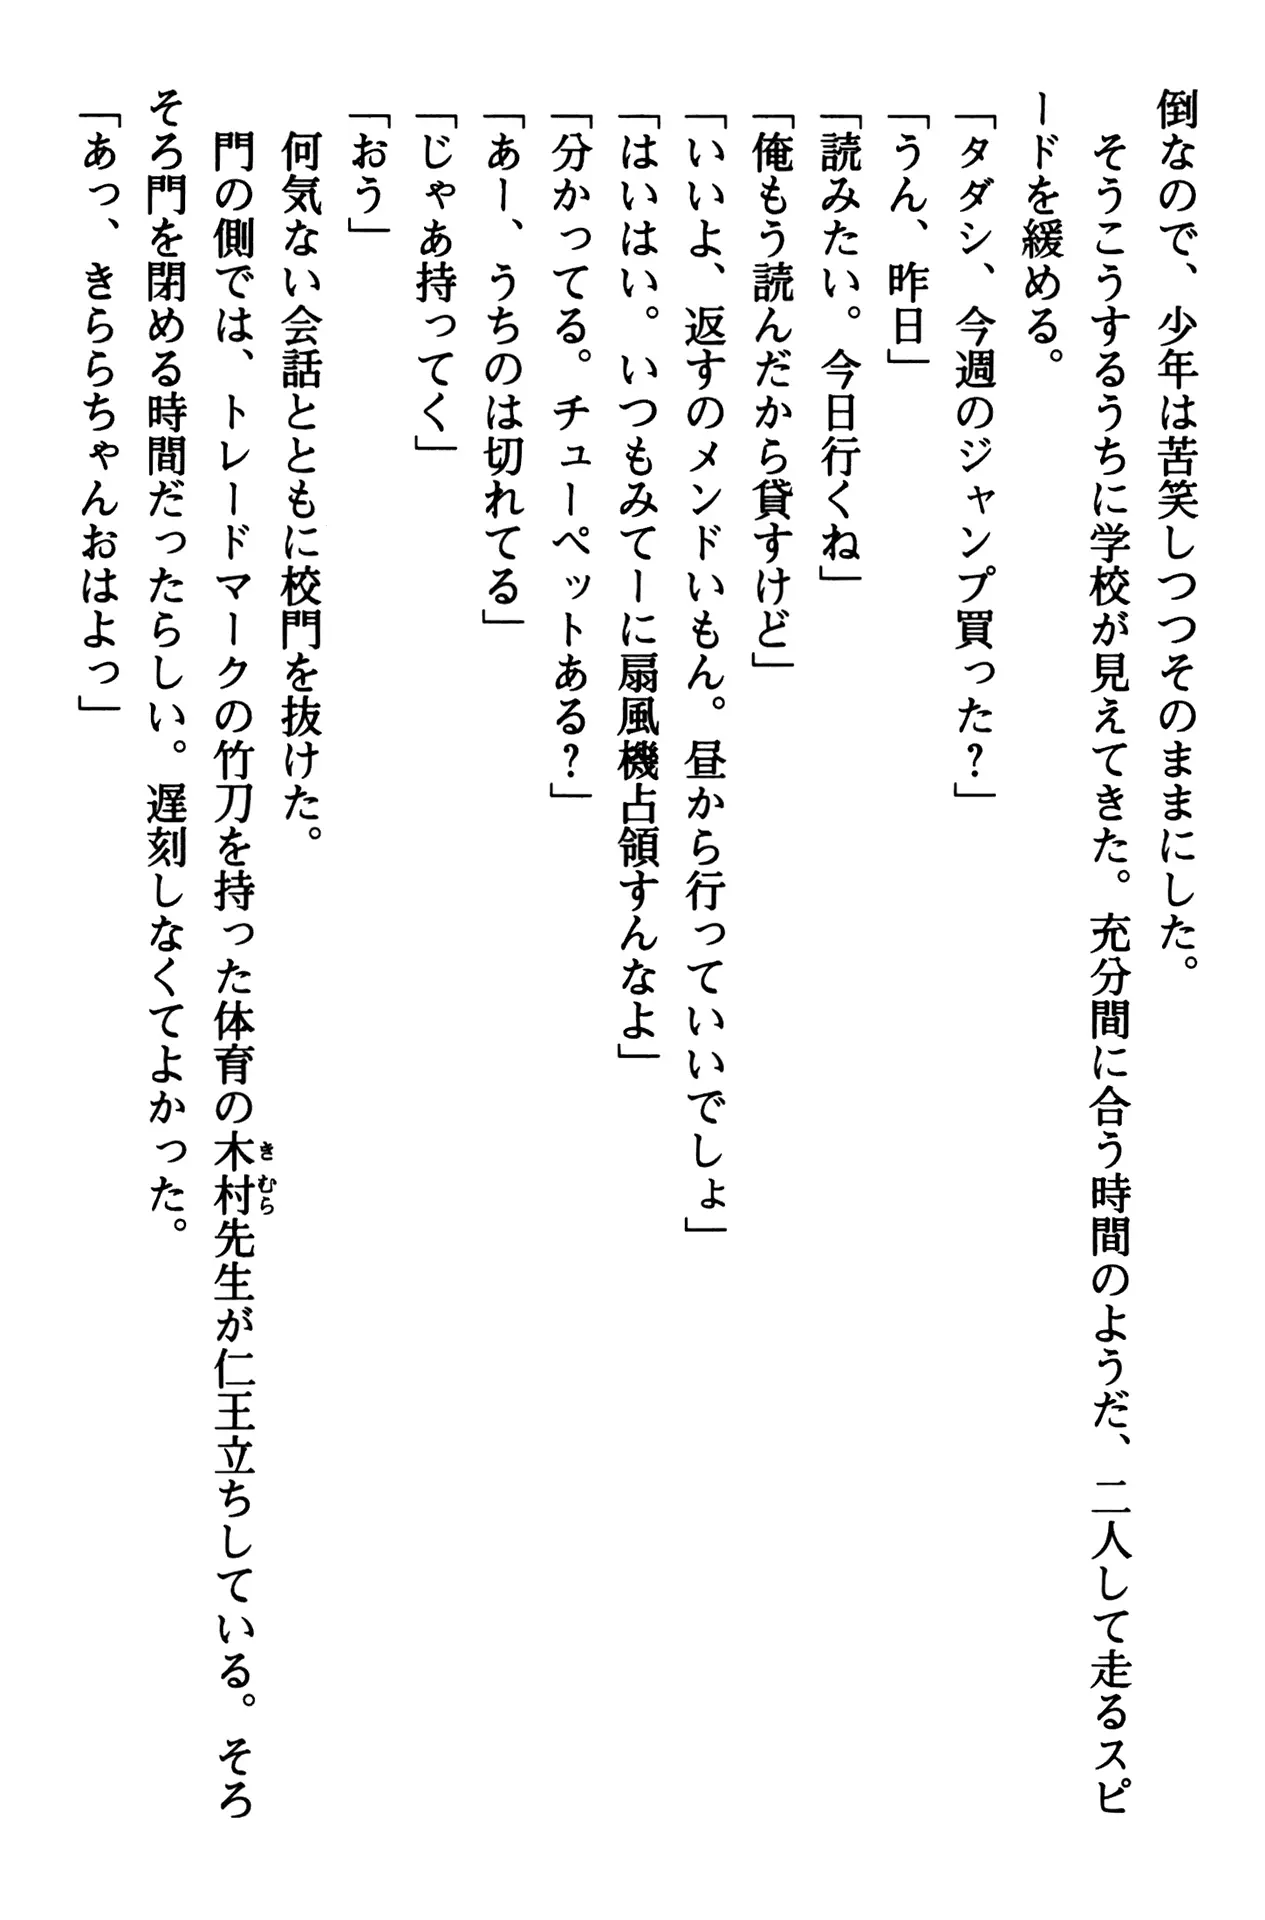 倒なので、少年は苦笑しつつそのままにした。
　そうこうするうちに学校が見えてきた。充分間に合う時間のようだ、二人して走るスピ
ードを緩める。
「タダシ、今週のジャンプ買った？」
「うん、昨日」
「読みたい。今日行くね」
「俺もう読んだから貸すけど」
「いいよ、返すのメンドいもん。昼から行っていいでしょ」
「はいはい。いつもみてーに扇風機占領すんなよ」
「分かってる。チューペットある？」
「あー、うちのは切れてる」
「じゃあ持ってく」
「おう」
　何気ない会話とともに校門を抜けた。
　門の側では、トレードマークの竹刀を持った体育の木村先生が仁王立ちしている。そろ
きむら
そろ門を閉める時間だったらしい。遅刻しなくてよかった。
「あっ、きららちゃんおはよっ」